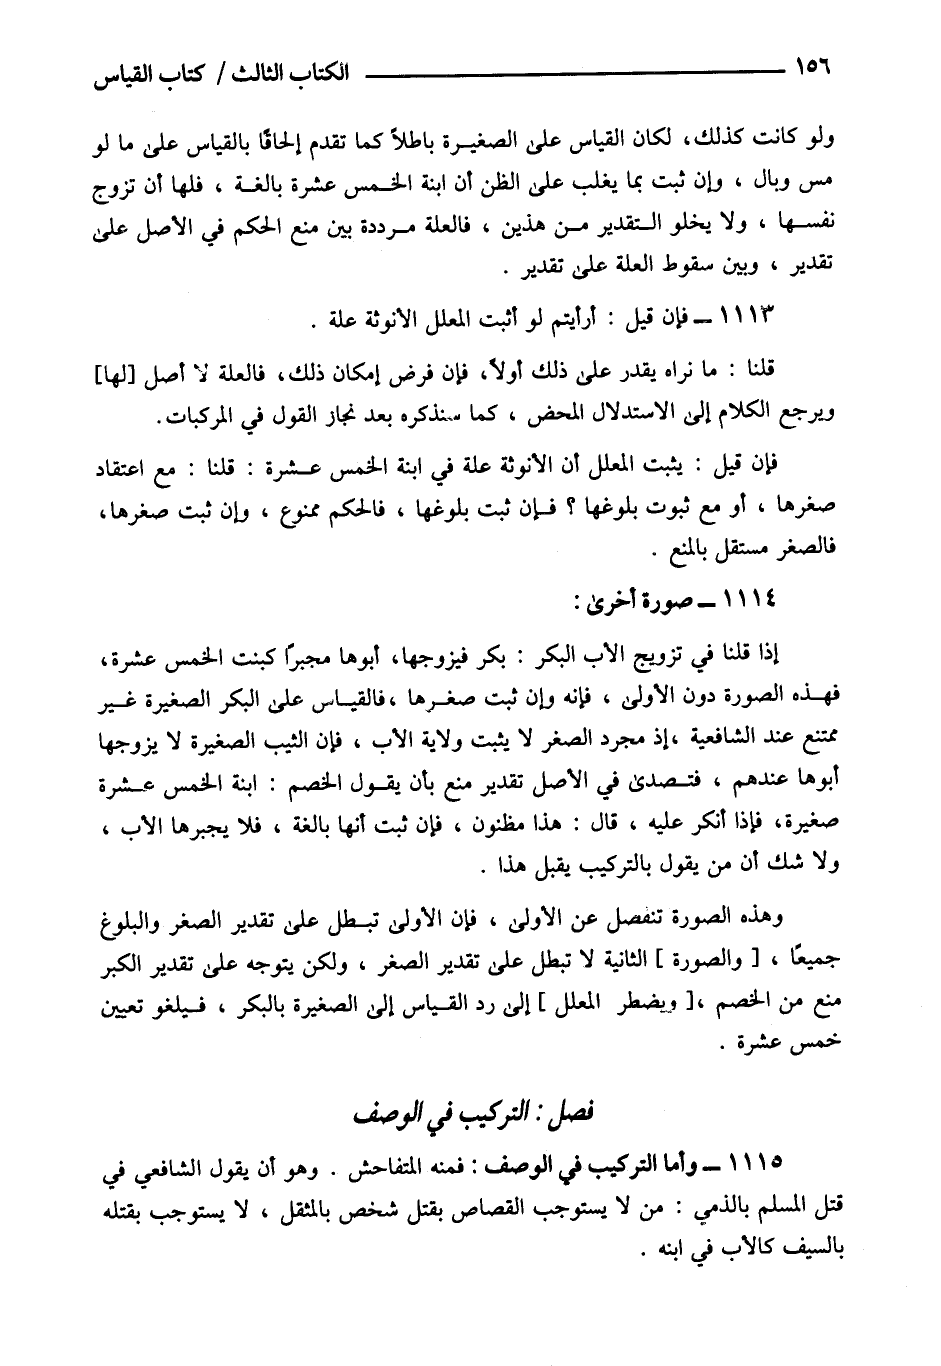 ١٥٦ الكتاب الثالث / كتاب القياس
ولو كانت كذلك، لكان القياس على الصغيرة باطلاً كما تقدم إلحاقًا بالقياس على ما لو
مس وبال ، وإن ثبت بما يغلب على الظن أن ابنة الخمس عشرة بالغة ، فلها أن تزوج
نفسها ، ولا يخلو التقدير من هذين ، فالعلة مرددة بين منع الحكم في الأصل على
تقدير ، وبين سقوط العلة على تقدير .
١١١٣ ــ فإن قيل : أرأيتم لو أثبت المعلل الأنوثة علة .
قلنا : ما نراه يقدر على ذلك أولاً، فإن فرض إمكان ذلك، فالعلة لا أصل [لها]
ويرجع الكلام إلى الاستدلال المحض ، كما سنذكره بعد نجاز القول في المركبات.
فإن قيل : يثبت المعلل أن الأنوثة علة في ابنة الخمس عشرة : قلنا : مع اعتقاد
صغرها ، أو مع ثبوت بلوغها ؟ فإن ثبت بلوغها ، فالحكم ممنوع ، وإن ثبت صغرها،
فالصغر مستقل بالمنع .
١١١٤ ــ صورة أخرى :
إذا قلنا في تزويج الأب البكر : بكر فيزوجها، أبوها مجبرًا كبنت الخمس عشرة،
فهذه الصورة دون الأولى ، فإنه وإن ثبت صغرها ،فالقياس على البكر الصغيرة غير
ممتنع عند الشافعية ،إذ مجرد الصغر لا يثبت ولاية الأب ، فإن الثيب الصغيرة لا يزوجها
أبوها عندهم ، فتصدى في الأصل تقدير منع بأن يقول الخصم : ابنة الخمس عشرة
صغيرة، فإذا أنكر عليه ، قال : هذا مظنون ، فإن ثبت أنها بالغة ، فلا يجبرها الأب ،
ولا شك أن من يقول بالتركيب يقبل هذا .
وهذه الصورة تنفصل عن الأولى ، فإن الأولى تبطل على تقدير الصغر والبلوغ
جميعًا ، [ والصورة ] الثانية لا تبطل على تقدير الصغر ، ولكن يتوجه على تقدير الكبر
منع من الخصم ،[ ويضطر المعلل ] إلى رد القياس إلى الصغيرة بالبكر ، فيلغو تعيين
خمس عشرة .
فصل : التركيب في الوصف
١١١٥ ــ وأما التركيب في الوصف : فمنه المتفاحش . وهو أن يقول الشافعي في
قتل المسلم بالذمي : من لا يستوجب القصاص بقتل شخص بالمثقل ، لا يستوجب بقتله
بالسيف كالأب في ابنه .